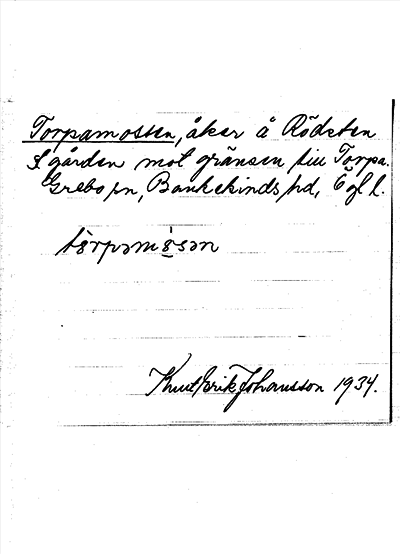 Torpamossen, åker å Rödsten
S.gården mot gränsen till Torpa.
Grebo sn, Bankekinds hd, Ögl l.
Knut Erik Johansson 1934.